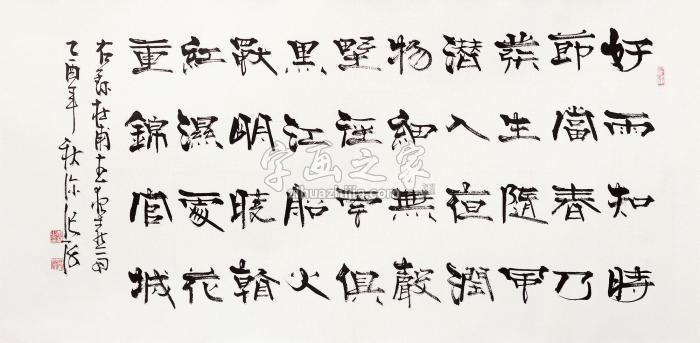 好雨知時
節當春乃
發生隨風
潜入夜潤
物細無聲
野徑雲俱
黑江船火
獨明曉看
紅濕處花
重錦官城
右錄杜甫春夜喜雨
乙酉年秋深
字画之家
zihuazhijia.com